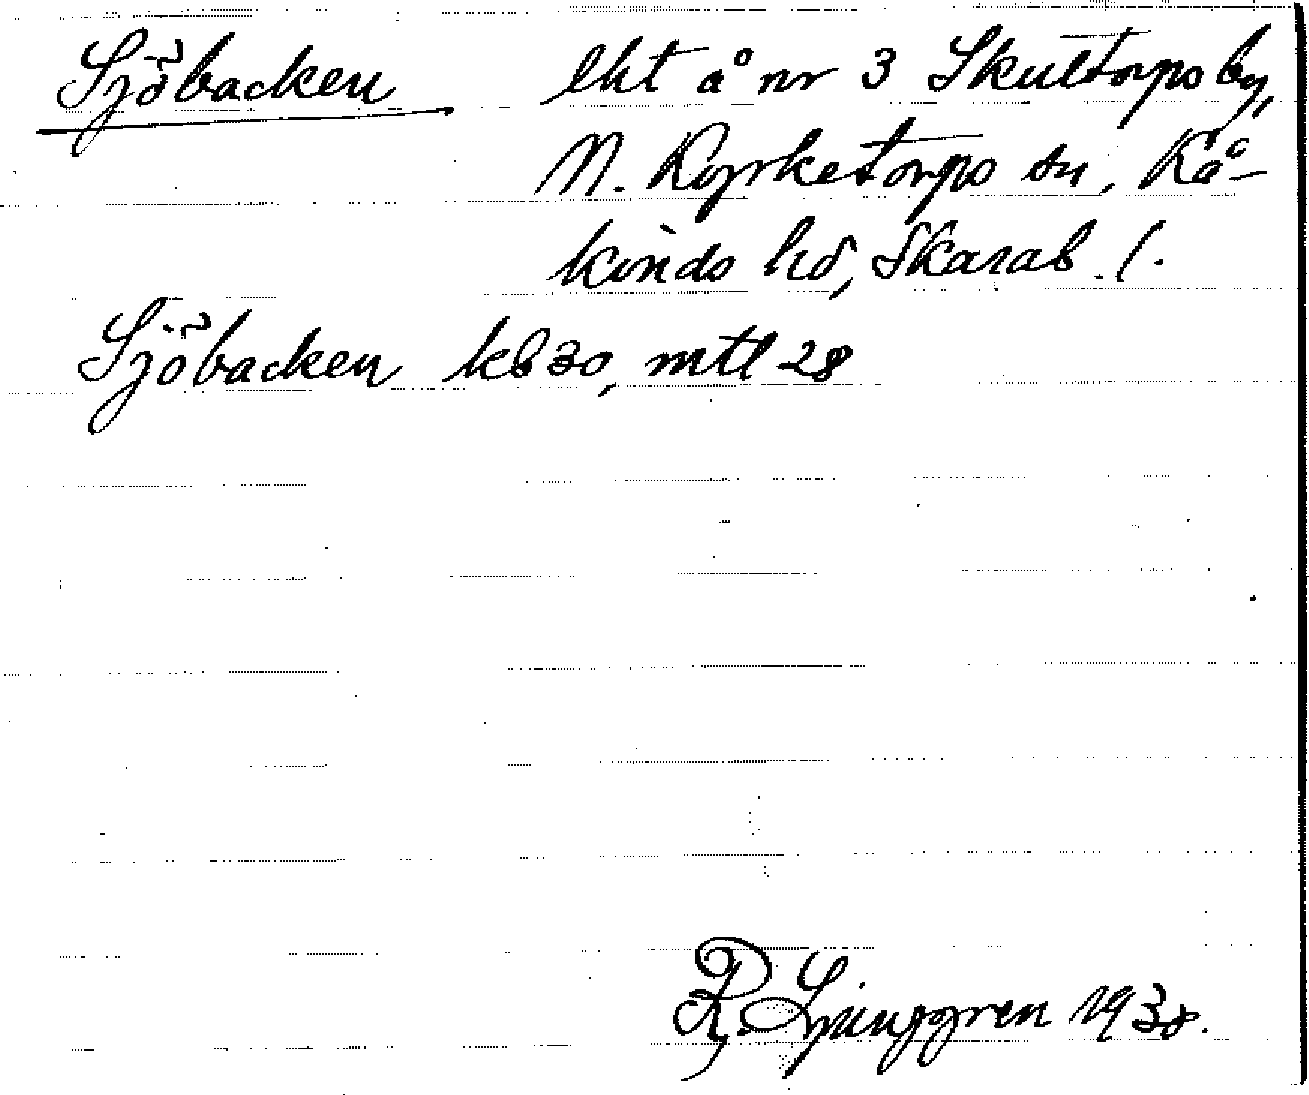 Sjöbacken lht å nr 3 Skultorps by,
N. Kyrketorps sn, Kå-
kinds hd, Skarab. l.
Sjöbacken kb 30, mtl 28
R. Ljunggren 1938.